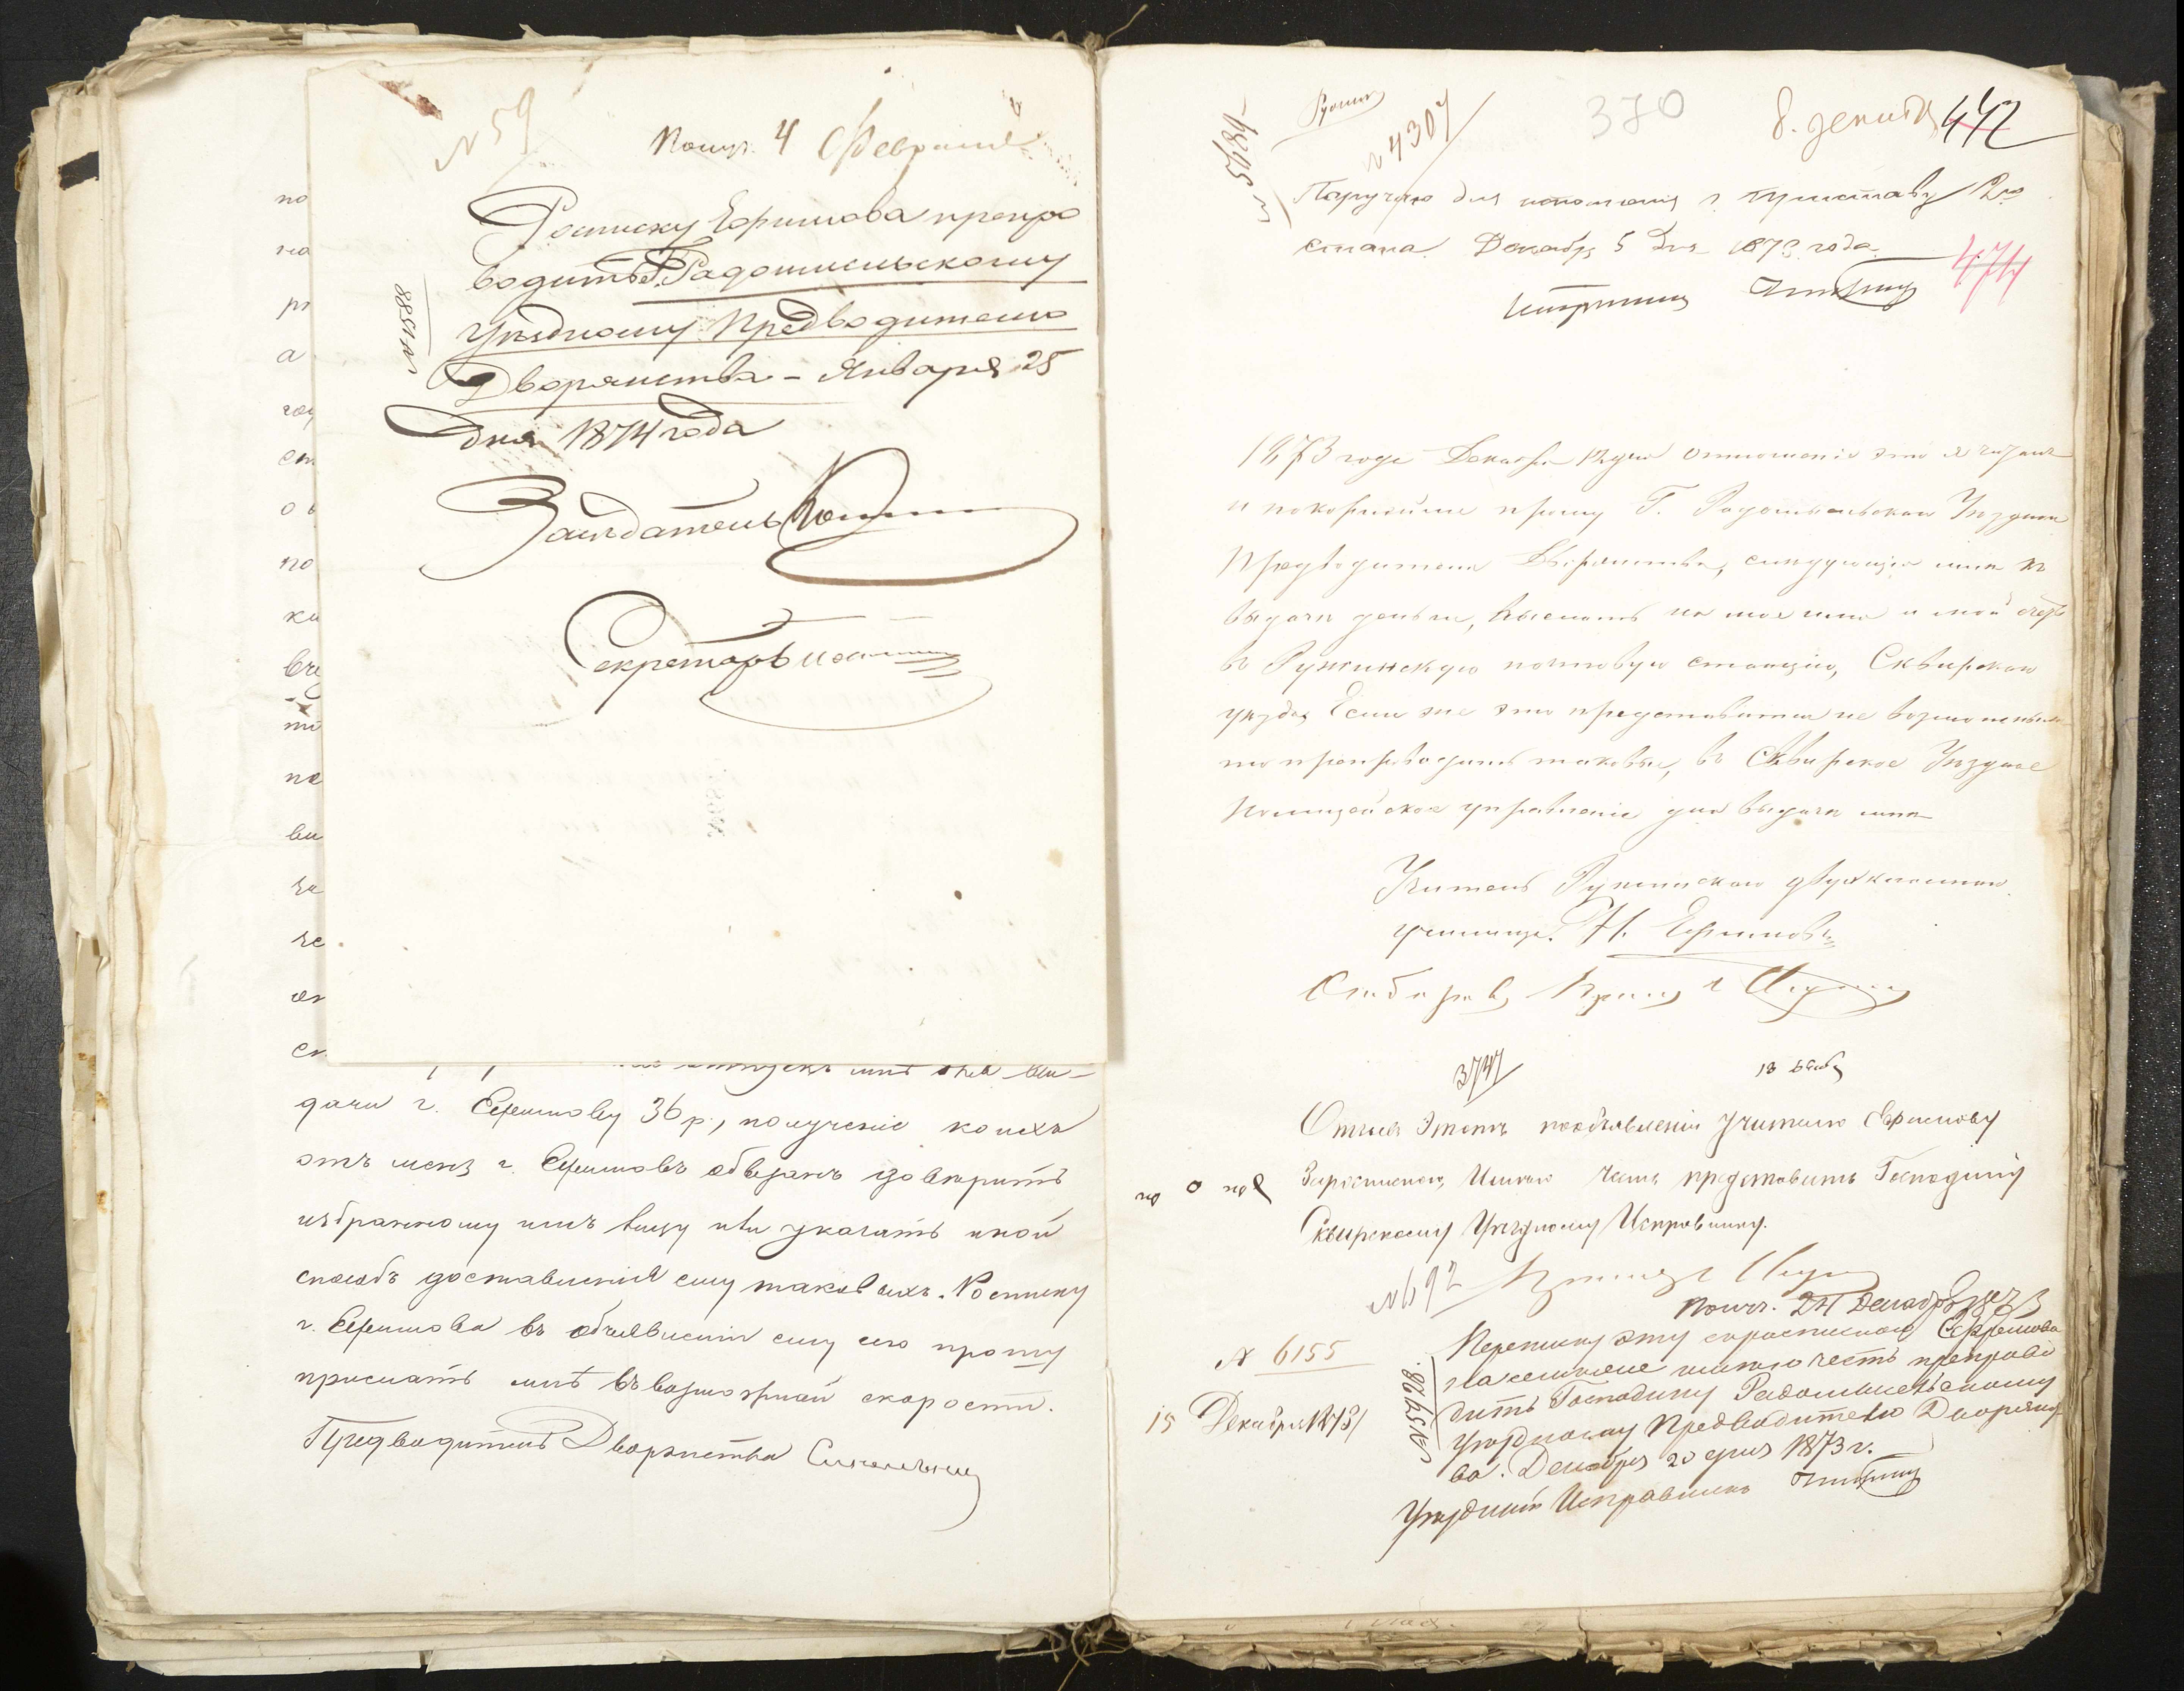 № 59
Получ. 4 Февраля
Росписку Ефимова препро
водить Г. Радомысльскому
Уѣздному Предводителю
Дворянства – Января 25
дня 1874 года
№ 1588
Засѣдатель
Секретарь
по
на
а
ст
по
вы
дачи г. Ефимову 36 р., полученіе коихъ
отъ меня г. Ефимовъ обязанъ довѣрить
избранному имъ лицу или указать иной
способъ доставленія ему таковыхъ. Росписку
г. Ефимова въ объявленіи ему сего прошу
прислать мнѣ въ возможной скорости.
Предводитель Дворянства
№ 5684
№ 4307
370
8. декабря 442
Поручаю для исполненія г. Приставу 2го
стана. Декабря 5 дня 1873 года.
474
Исправникъ
1873 года Декабря 12 дня отношеніе это я читалъ
и покорнѣйше прошу Г. Радомысльскаго Уѣзднаго
Предводителя Дворянства, слѣдующія мнѣ къ
выдачѣ деньги, выслать на мое имя и мой счетъ
въ Ружинскую почтовую станцію, Сквирскаго
уѣзда, Если же это представится не возможнымъ
то препроводить таковые, въ Сквирское Уѣздное
Полицейское управленіе для выдачи мнѣ
Учитель Ружинскаго двухкласснаго
училища. Н. Ефимовъ
3747
13 Декаб
Отзывъ этотъ по объявленіи учителю Ефимову
заросписною, Имѣю честь представить Господину
Сквирскому Уѣздному Исправнику.
№ 692
№ 6155
15 Декабря 1873
Получ. 24 Декабря 1873
Переписку эту съ роспискою Ефимова
имѣю честь препрово
дить Господину Радомысльскому
Уѣздному Предводителю Дворянст
ва. Декабря 20 дня 1873 г.
Уѣздный Исправникъ